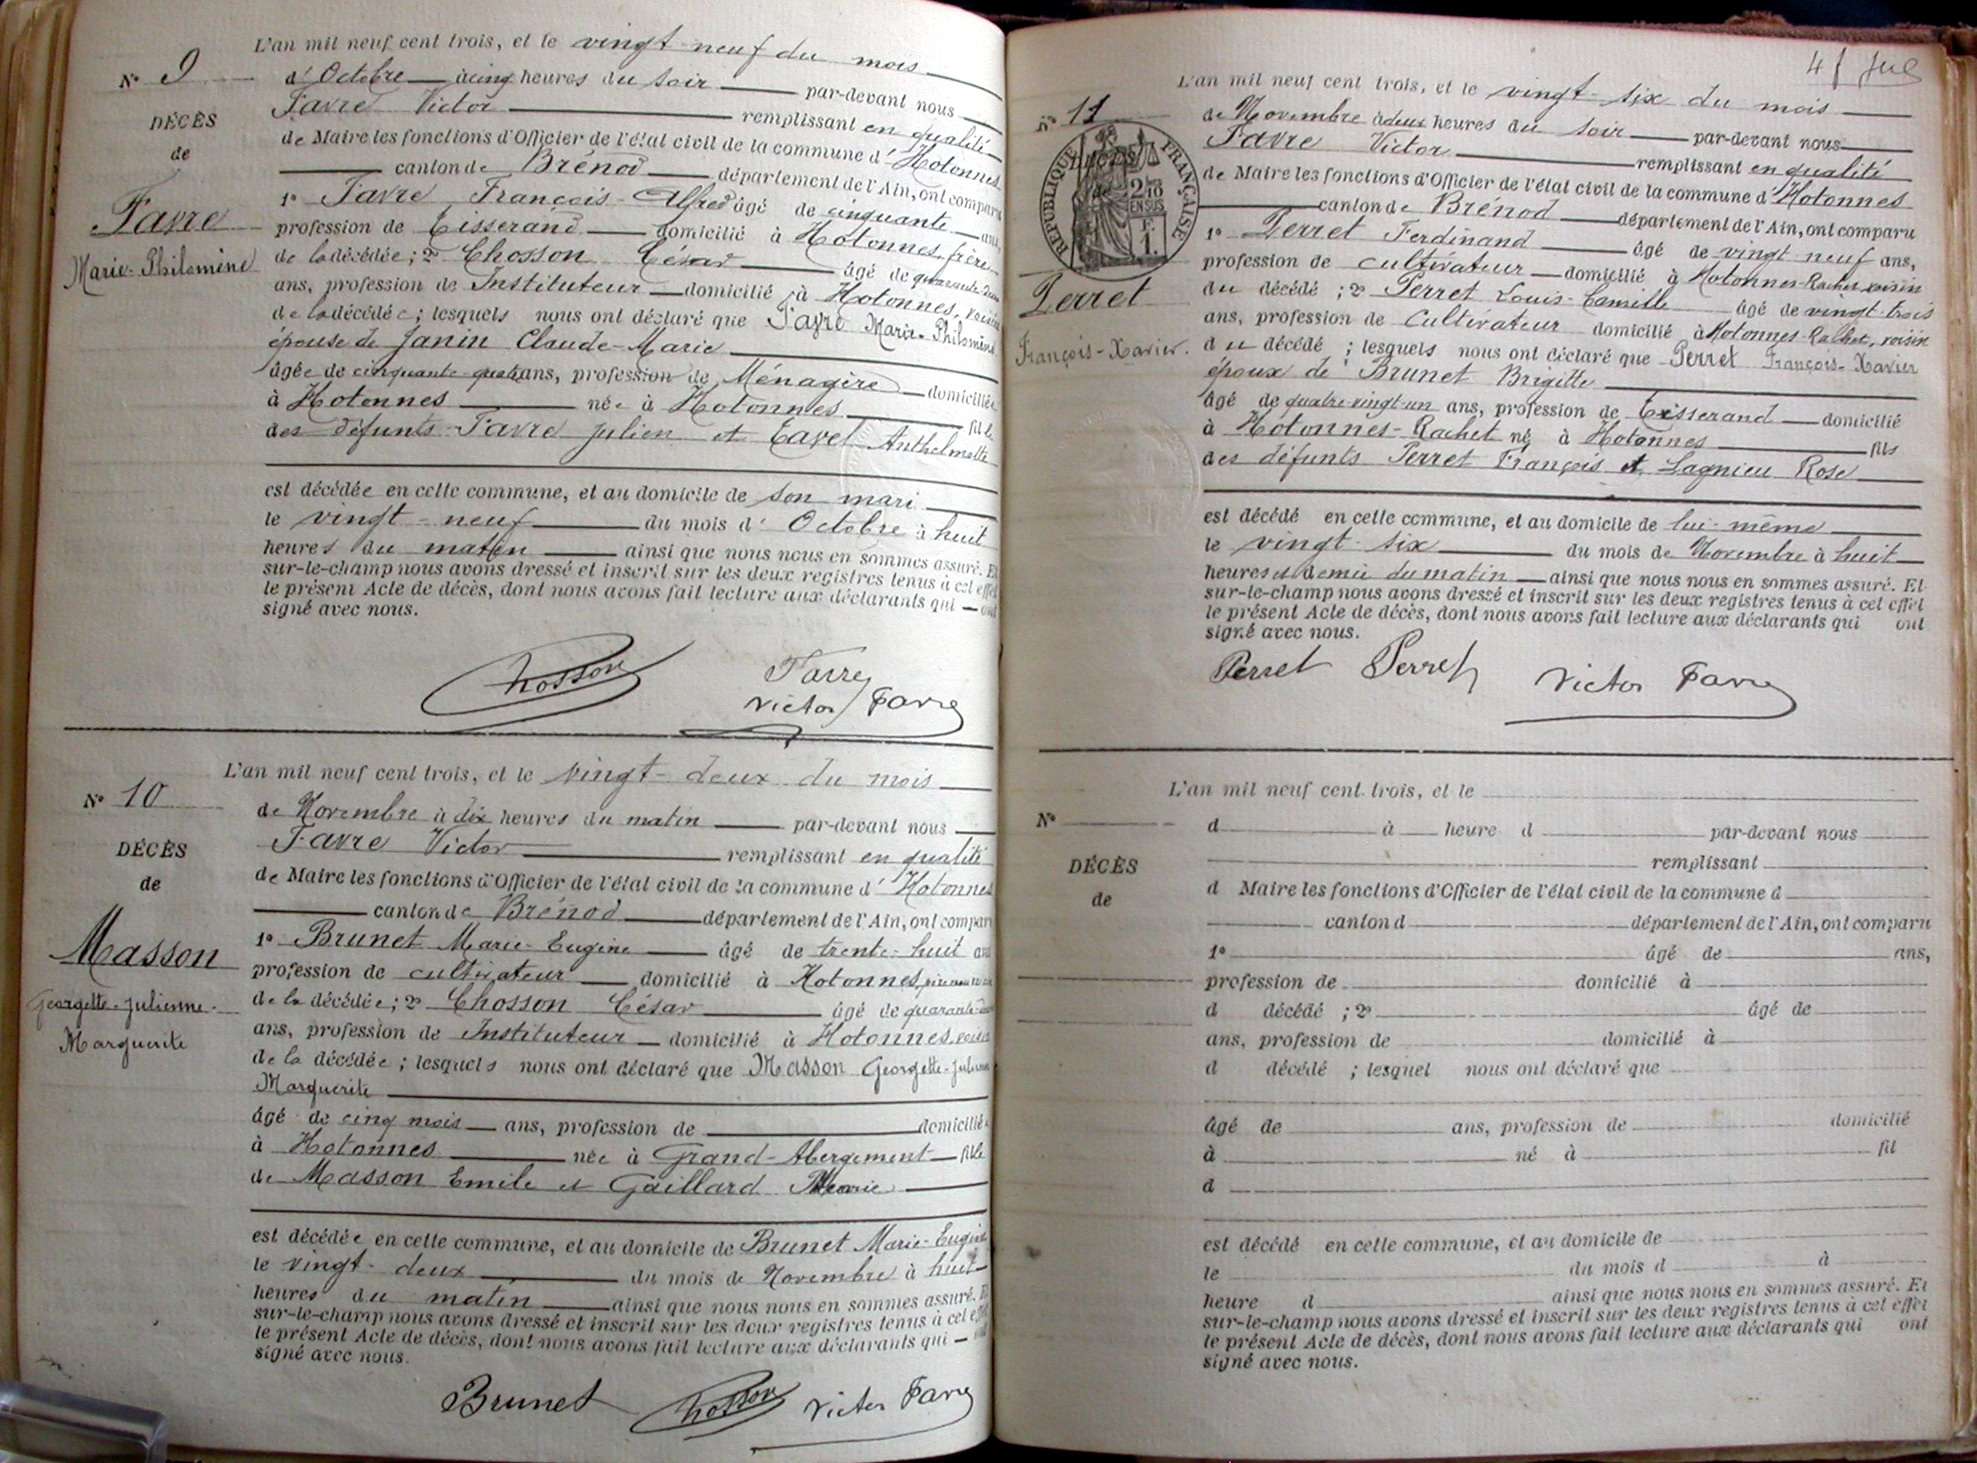 N° 9
DÉCÈS
de
Favre
Marie-Philomène
L'an mil neuf cent trois, et le vingt-neuf du mois
d'Octobre à cinq heures du soir par-devant nous
Favre Victor remplissant en qualité
de Maire les fonctions d'Officier de l'état civil de la commune d'Hotonnes
canton de Brénod département de l'Ain, ont comparu
1° Favre François-Alfred âgé de cinquante ans,
profession de Tisserand domicilié à Hotonnes, frère
de la décédée; 2° Chosson César âgé de quarante-deux
ans, profession de Instituteur domicilié à Hotonnes, voisin
de la décédée; lesquels nous ont déclaré que Favre Marie-Philomène
épouse de Janin Claude-Marie
âgée de cinquante-quatre ans, profession de Ménagère domiciliée
à Hotonnes née à Hotonnes fille
des défunts Favre Julien et Tavel Anthelmette
est décédée en cette commune, et au domicile de son mari
le vingt-neuf du mois d'Octobre à huit
heures du matin ainsi que nous nous en sommes assuré. Et
sur-le-champ nous avons dressé et inscrit sur les deux registres tenus à cet effet
le présent Acte de décès, dont nous avons fait lecture aux déclarants qui ont
signé avec nous.
Chosson Favre
Victor Favre
N° 10
DÉCÈS
de
Masson
Georgette-Julienne-
Marguerite
L'an mil neuf cent trois, et le vingt-deux du mois
de Novembre à dix heures du matin par-devant nous
Favre Victor remplissant en qualité
de Maire les fonctions d'Officier de l'état civil de la commune d'Hotonnes
canton de Brénod département de l'Ain, ont comparu
1° Brunet Marie-Eugène âgé de trente-huit ans
profession de cultivateur domicilié à Hotonnes, père nourricier
de la décédée; 2° Chosson César âgé de quarante-deux
ans, profession de Instituteur domicilié à Hotonnes, voisin
de la décédée; lesquels nous ont déclaré que Masson Georgette-Julienne
Marguerite
âgé de cinq mois ans, profession de domiciliée
à Hotonnes née à Grand-Abergement fille
de Masson Emile et Gaillard Marie
est décédée en cette commune, et au domicile de Brunet Marie-Eugène
le vingt-deux du mois de Novembre à huit
heures du matin ainsi que nous nous en sommes assuré. Et
sur-le-champ nous avons dressé et inscrit sur les deux registres tenus à cet effet
le présent Acte de décès, dont nous avons fait lecture aux déclarants qui ont
signé avec nous.
Brunet Chosson Victor Favre
N° 11
RÉPUBLIQUE FRANÇAISE
2/10 EN SUS
F.
1.
Perret
François-Xavier.
L'an mil neuf cent trois, et le vingt-six du mois
de Novembre à deux heures du soir par-devant nous
Favre Victor remplissant en qualité
de Maire les fonctions d'Officier de l'état civil de la commune d'Hotonnes
canton de Brénod département de l'Ain, ont comparu
1° Perret Ferdinand âgé de vingt neuf ans,
profession de cultivateur domicilié à Hotonnes-Rachet, voisin
du décédé; 2° Perret Louis-Camille âgé de vingt-trois
ans, profession de Cultivateur domicilié à Hotonnes-Rachet, voisin
du décédé; lesquels nous ont déclaré que Perret François-Xavier
époux de Brunet Brigitte
âgé de quatre-vingt-un ans, profession de Tisserand domicilié
à Hotonnes-Rachet né à Hotonnes fils
des défunts Perret François et Lagnieu Rose
est décédé en cette commune, et au domicile de lui-même
le vingt-six du mois de Novembre à huit
heures et demie du matin ainsi que nous nous en sommes assuré. Et
sur-le-champ nous avons dressé et inscrit sur les deux registres tenus à cet effet
le présent Acte de décès, dont nous avons fait lecture aux déclarants qui ont
signé avec nous.
Perret Perret Victor Favre
N°
DÉCÈS
de
L'an mil neuf cent trois, et le
d à heure d par-devant nous
remplissant
d Maire les fonctions d'Officier de l'état civil de la commune d
canton d département de l'Ain, ont comparu
1° âgé de ans,
profession de domicilié à
d décédé; 2° âgé de
ans, profession de domicilié à
d décédé; lesquel nous ont déclaré que
âgé de ans, profession de domicilié
à né à fil
d
est décédé en cette commune, et au domicile de
le du mois d à
heure d ainsi que nous nous en sommes assuré. Et
sur-le-champ nous avons dressé et inscrit sur les deux registres tenus à cet effet
le présent Acte de décès, dont nous avons fait lecture aux déclarants qui ont
signé avec nous.